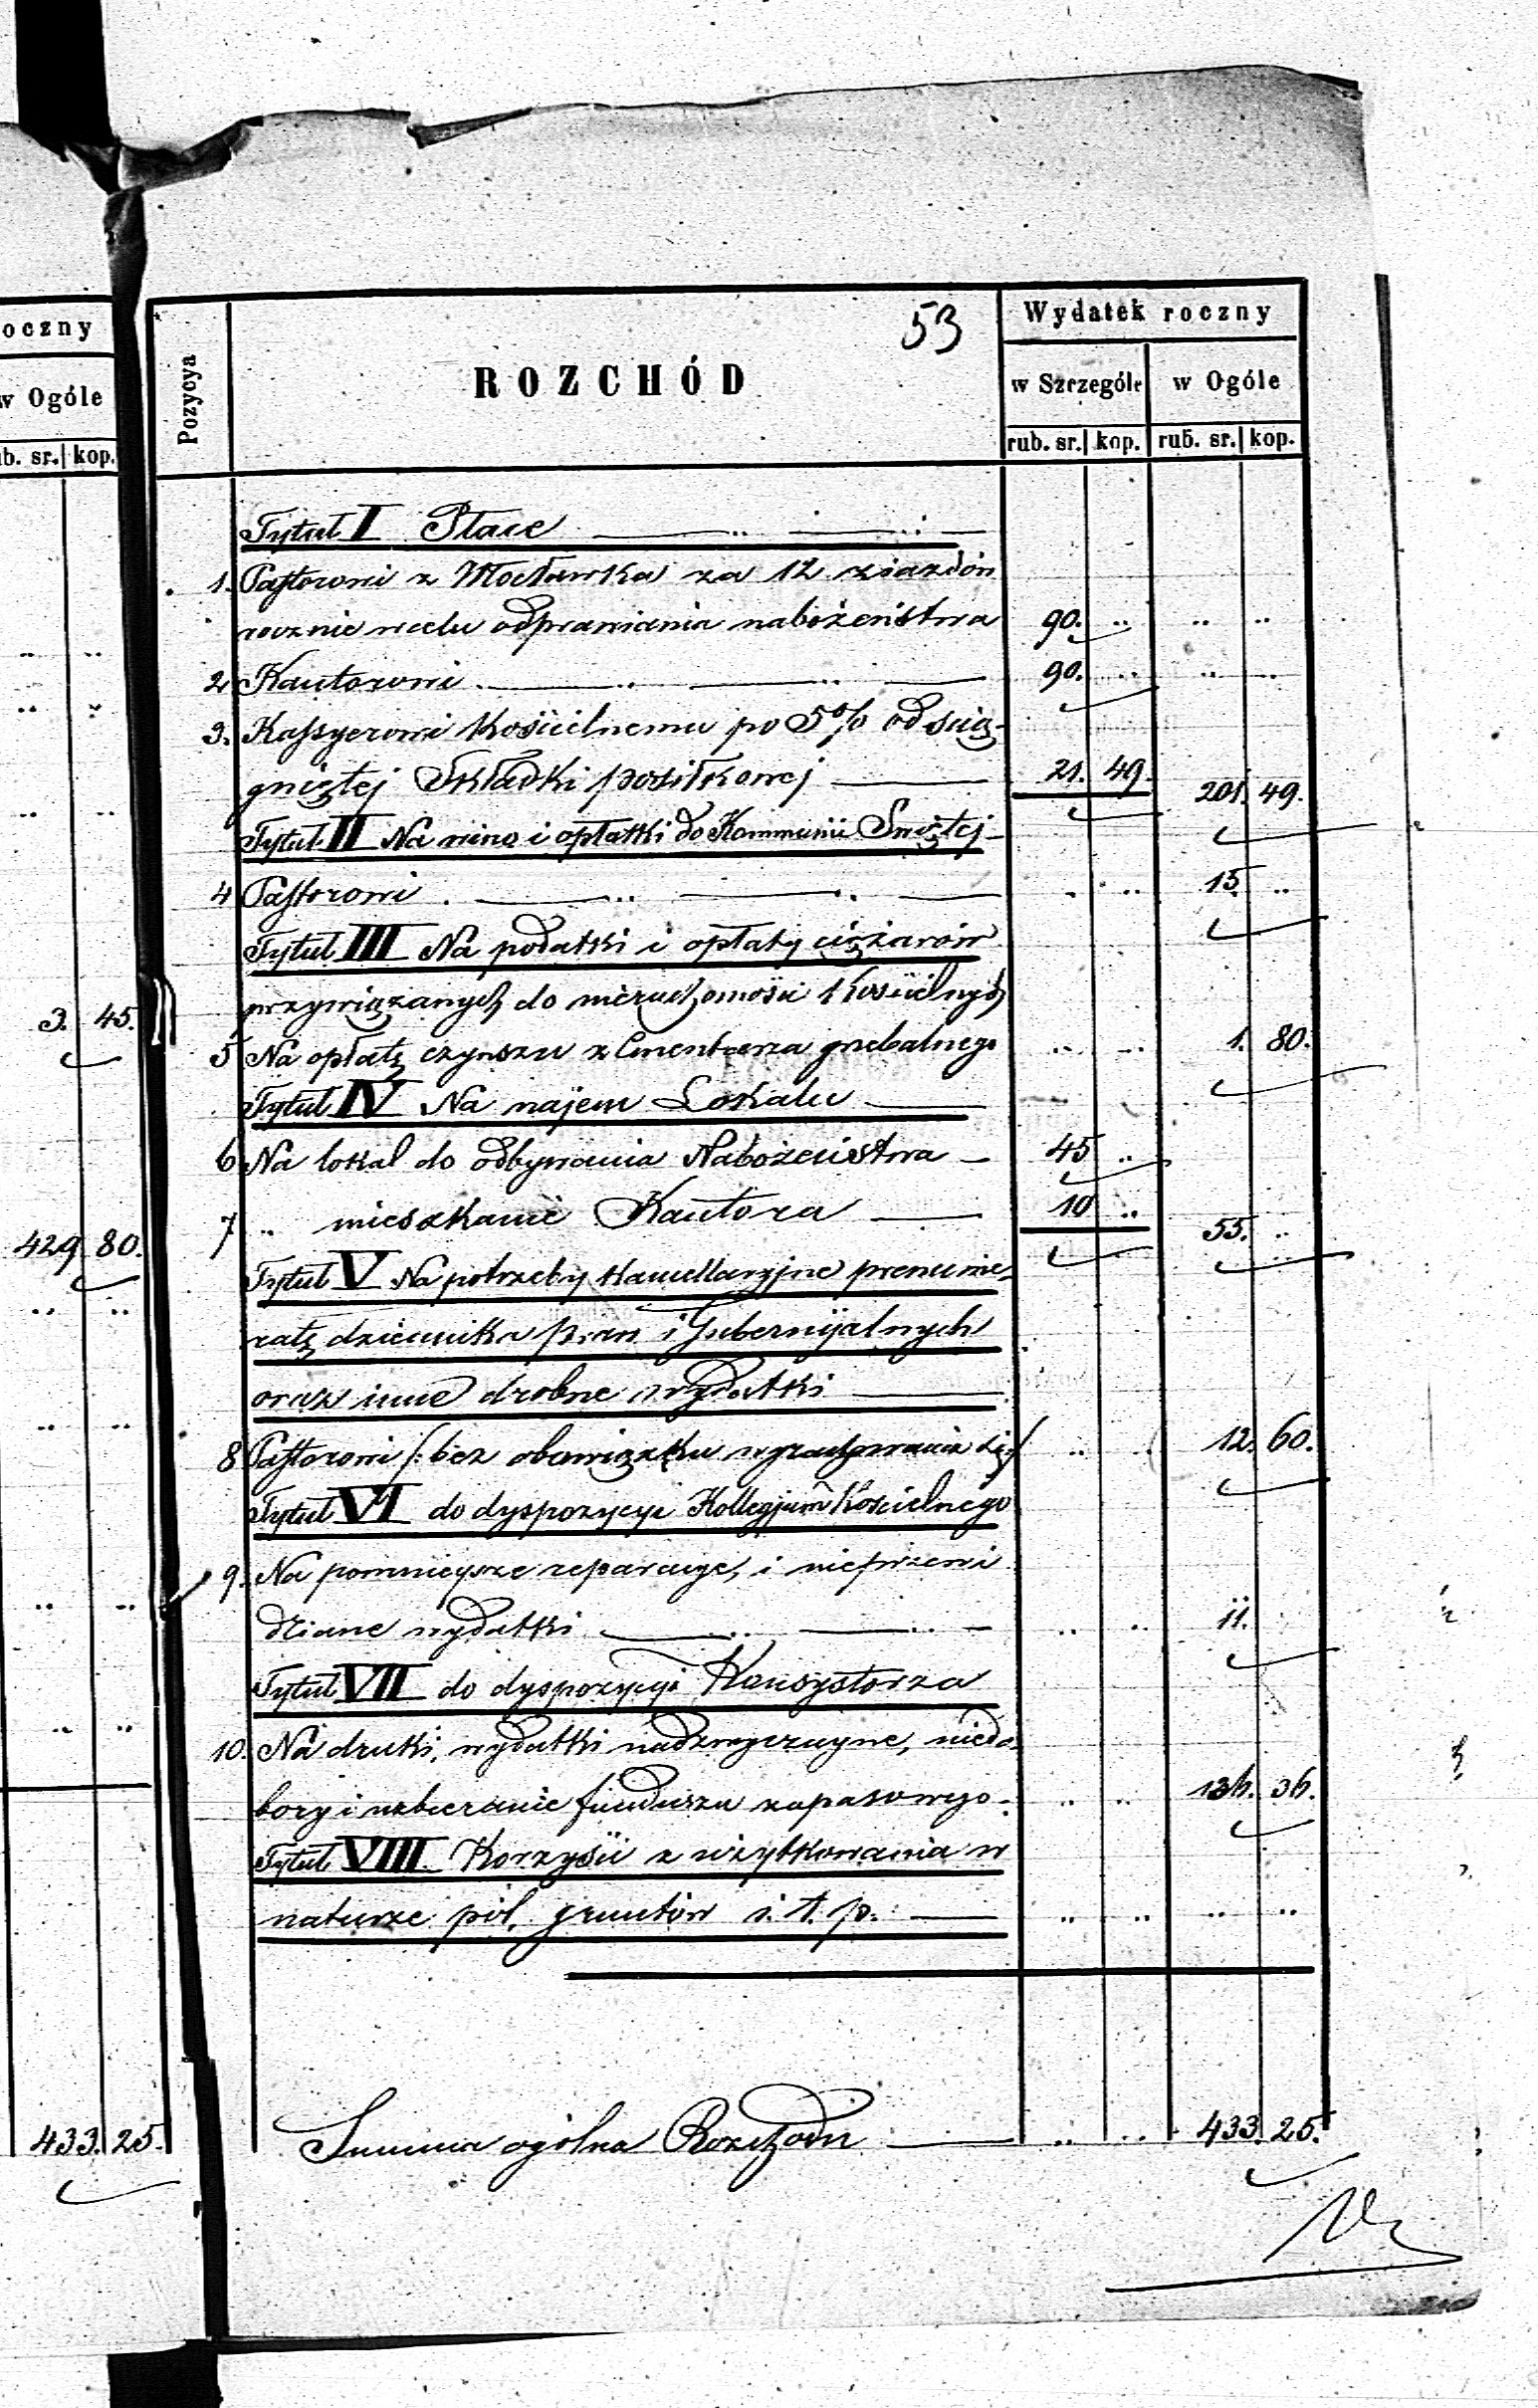 oczny
w Ogóle
ub. sr. kop.
3. 45.
429 80.
433. 25.
53
Pozycya
ROZCHÓD
Wydatek roczny
w Szczególe w Ogóle
rub. sr. kop. rub. sr. kop.
Tytuł I Płace
1. Pastorowi z Włocławka za 12 zjazdów
rocznie w celu odprawiania nabożeństwa 90. .. .. ..
2 Kantorowi 90. .. .. ..
3. Kassyerowi Kościelnemu po 5% od ścią-
gniętej Składki posiłkowej 21. 49. 201. 49.
Tytuł II Na wino i opłatki do Kommunii Świętej
4 Pastorowi .. .. 15. ..
Tytuł III Na podatki i opłaty ciężarów
przywiązanych do nieruchomości Kościelnych
5 Na opłatę czynszu z Cmentarza grzebalnego .. .. 1. 80.
Tytuł IV Na najem Lokalu
6 Na lokal do odbywania Nabożeństwa 45 ..
7 .. mieszkanie Kantora 10 .. 55. ..
Tytuł V Na potrzeby Kancellaryjne prenume-
ratę dziennika praw i Gubernijalnych
oraz inne drobne wydatki
8 Pastorowi /: bez obowiązku wyrachowania się :/ .. 12. 60.
Tytuł VI do dyspozycyi Kollegjum Kościelnego
9. Na pomniejsze reparacye, i nieprzewi
dziane wydatki .. .. 11.
Tytuł VII do dyspozycyi Konsystorza
10. Na druki, wydatki nadzwyczajne, niedo-
bory i uzbieranie funduszu zapasowego .. .. 136. 36.
Tytuł VIII Korzyści z użytkowania w
naturze pól, gruntów i. t. p. .. .. .. ..
Summa ogólna Rozchodu .. .. 433. 25.